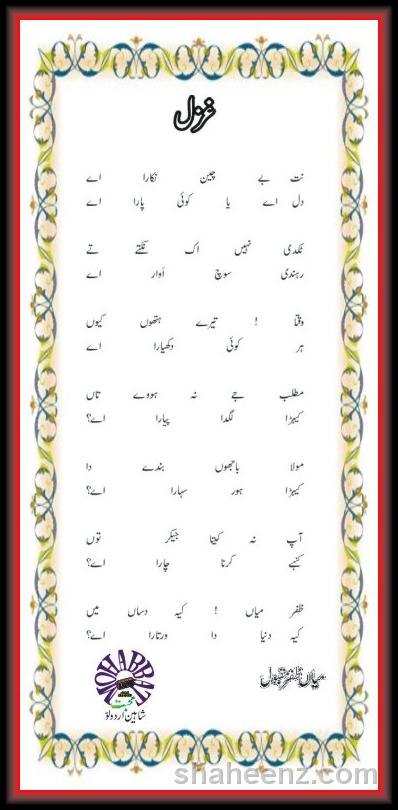 غزل
نت بے چین نکارا اے
دل اے یا کوئی پارا اے
ٹکدی نہیں اک نکتے تے
رہندی سوچ آوار اے
وقتا ! تیرے ہتھوں کیوں
ہر کوئی دکھیارا اے
مطلب جے نہ ہووے تاں
کیہڑا لگدا پیارا اے؟
مولا باجھوں بندے دا
کیہڑا ہور سہارا اے؟
آپ نہ کیتا جیکر توں
کنہے کرنا چارا اے؟
ظفر میاں ! کیہ دساں میں
کیہ دنیا دا ورتارا اے؟
میاں ظفر مقبول
MOHABBAT
محبت
شاہین اردولو
shaheenz.com